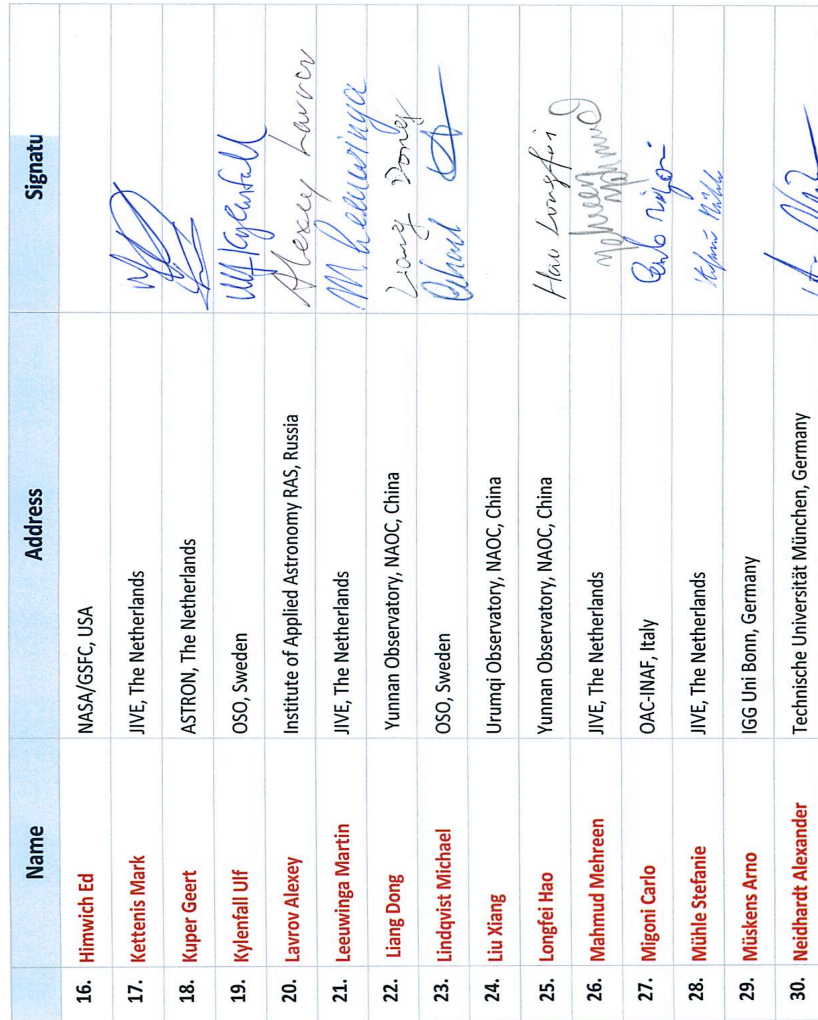 Name Address Signatu
16. Himwich Ed NASA/GSFC, USA
17. Kettenis Mark JIVE, The Netherlands
18. Kuper Geert ASTRON, The Netherlands
19. Kylenfall Ulf OSO, Sweden Ulf Kylenfall
20. Lavrov Alexey Institute of Applied Astronomy RAS, Russia Alexey Lavrov
21. Leeuwinga Martin JIVE, The Netherlands M Leeuwinga
22. Liang Dong Yunnan Observatory, NAOC, China Liang Dong
23. Lindqvist Michael OSO, Sweden
24. Liu Xiang Urumqi Observatory, NAOC, China
25. Longfei Hao Yunnan Observatory, NAOC, China Hao Longfei
26. Mahmud Mehreen JIVE, The Netherlands Mehreen Mahmud
27. Migoni Carlo OAC-INAF, Italy Carlo Migoni
28. Mühle Stefanie JIVE, The Netherlands Stefanie Mühle
29. Müskens Arno IGG Uni Bonn, Germany
30. Neidhardt Alexander Technische Universität München, Germany